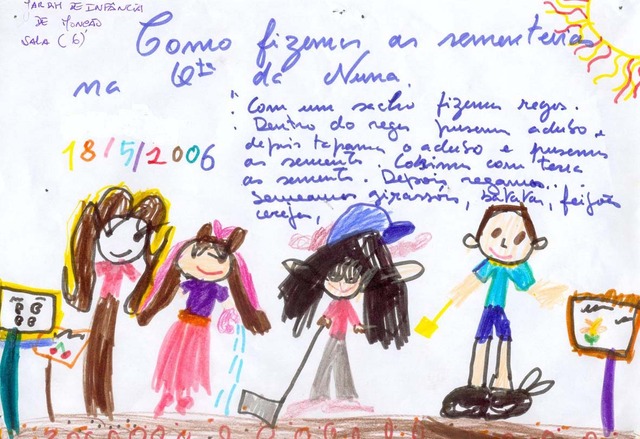 JARDIM DE INFÂNCIA
DE MONÇÃO
SALA (6)
Como fizemos as sementeiras
na Qta da Nuna.
18/5/2006
Com um sacho fizemos regos.
Dentro do rego pusemos adubo e
depois tapamos o adubo e pusemos
as sementes. Cobrimos com terra
as sementes. Depois regamos...
Semeamos girassóis, batatas, feijões
cerejas,